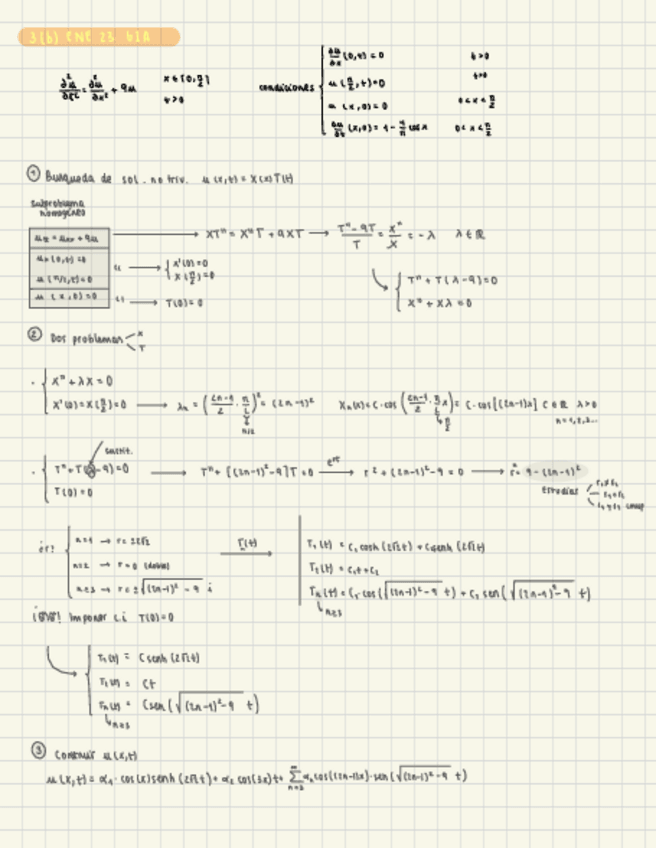 3(b) ENE 23 61A
∂²u/∂t² = ∂²u/∂x² + 9u x ∈ [0, π/2] t>0
condiciones
∂u/∂x (0,t) = 0 t>0
u(π/2,t) = 0 t>0
u(x,0) = 0 0<x<π/2
∂u/∂t (x,0) = 1 - 4/π cos x 0<x<π/2
① Busqueda de sol. no triv. u(x,t) = X(x)T(t)
subproblema homogéneo
u_tt = u_xx + 9u → XT" = X"T + 9XT → (T"-9T)/T = X"/X = -λ λ ∈ ℝ
u_x(0,t) = 0
u(π/2,t) = 0
→ { X'(0) = 0
X(π/2) = 0
u(x,0) = 0 → T(0) = 0
{ T" + T(λ-9) = 0
X" + Xλ = 0
② Dos problemas X T
X" + λX = 0
X'(0) = X(π/2) = 0 → λn = ((2n-1)/2 · π/L)² = (2n-1)² Xn(x) = C·cos((2n-1)/2 · π/L x) = C·cos[(2n-1)x] C ∈ ℝ λ>0
π/2 π/2 n=1,2,3...
sustit.
T" + T(λ-9) = 0 → T" + [(2n-1)²-9]T = 0 → e^rt → r² + (2n-1)² - 9 = 0 → r² = 9-(2n-1)²
T(0) = 0
Estudiar
n=1 → r = ±2√2
n=2 → r = 0 (doble)
n≥3 → r = ±√((2n-1)² - 9) i
T(t)
T₁(t) = C₁ cosh(2√2t) + C₂ senh(2√2t)
T₂(t) = C₁t + C₂
Tn(t) = C₁ cos(√((2n-1)²-9) t) + C₂ sen(√((2n-1)²-9) t)
n≥3
Imponer c.i T(0) = 0
T₁(t) = C senh(2√2t)
T₂(t) = Ct
Tn(t) = C sen(√((2n-1)²-9) t)
n≥3
③ Construir u(x,t)
u(x,t) = α₁·cos(x) senh(2√2t) + α₂ cos(3x)t + Σ αn cos((2n-1)x)·sen(√((2n-1)²-9) t)